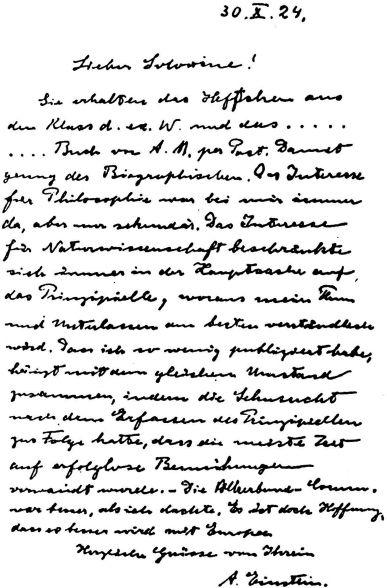 30.X.24.
Lieber Solovine!
Sie erhalten das Heftchen aus
den Klass d. ex. W. und das . . . . .
. . . . Buch von A. M. per Post. Damit
genug des Biographischen. Das Interesse
für Philosophie war bei mir immer
da, aber nur sekundär. Das Interesse
für Naturwissenschaft beschränkte
sich immer in der Hauptsache auf
das Prinzipielle, woraus mein Thun
und Unterlassen am besten verständlich
wird. Dass ich so wenig publiziert habe,
hängt mit dem gleichen Umstand
zusammen, indem die Sehnsucht
nach dem Erfassen des Prinzipiellen
zur Folge hatte, dass die meiste Zeit
auf erfolglose Bemühungen
verwandt wurde. – Die Völkerbund-Comm.
war besser, als ich dachte. Es ist doch Hoffnung,
dass es besser wird mit Europa.
Herzliche Grüsse von Ihrem
A. Einstein.